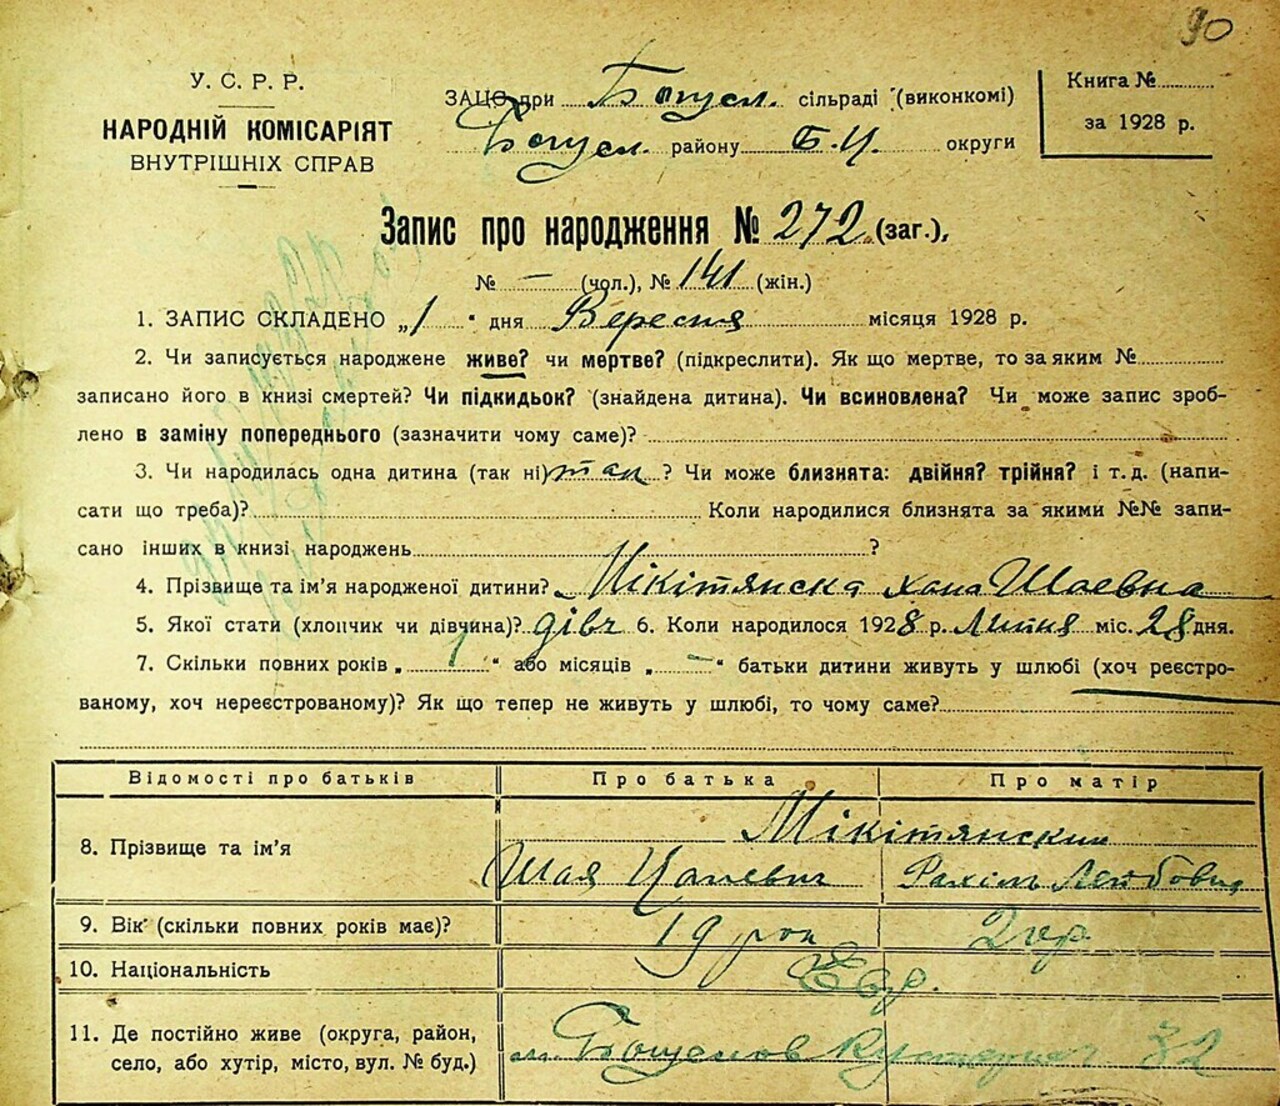 90
У. С. Р. Р.
НАРОДНІЙ КОМІСАРІЯТ
ВНУТРІШНІХ СПРАВ
ЗАЦС при Богусл. сільраді (виконкомі)
Богусл. району Б.Ц. округи
Книга №
за 1928 р.
Запис про народження № 272 (заг.),
№ — (чол.), № 141 (жін.)
1. ЗАПИС СКЛАДЕНО „1“ дня Вересня місяця 1928 р.
2. Чи записується народжене живе? чи мертве? (підкреслити). Як що мертве, то за яким №
записано його в книзі смертей? Чи підкидьок? (знайдена дитина). Чи всиновлена? Чи може запис зроб-
лено в заміну попереднього (зазначити чому саме)?
3. Чи народилась одна дитина (так ні) так ? Чи може близнята: двійня? трійня? і т. д. (напи-
сати що треба)? Коли народилися близнята за якими №№ запи-
сано інших в книзі народжень ?
4. Прізвище та ім'я народженої дитини? Мікітянска Хана Шаевна
5. Якої стати (хлопчик чи дівчина)? дівч 6. Коли народилося 1928 р. Липня міс. 28 дня.
7. Скільки повних років „1“ або місяців „—“ батьки дитини живуть у шлюбі (хоч реєстро-
ваному, хоч нереєстрованому)? Як що тепер не живуть у шлюбі, то чому саме?
Відомості про батьків Про батька Про матір
8. Прізвище та ім'я Мікітянски
Шая Рахіль Лейбовна
9. Вік (скільки повних років має)? 19 рок
10. Національність Євр.
11. Де постійно живе (округа, район,
село, або хутір, місто, вул. № буд.) м. Богуслов 32